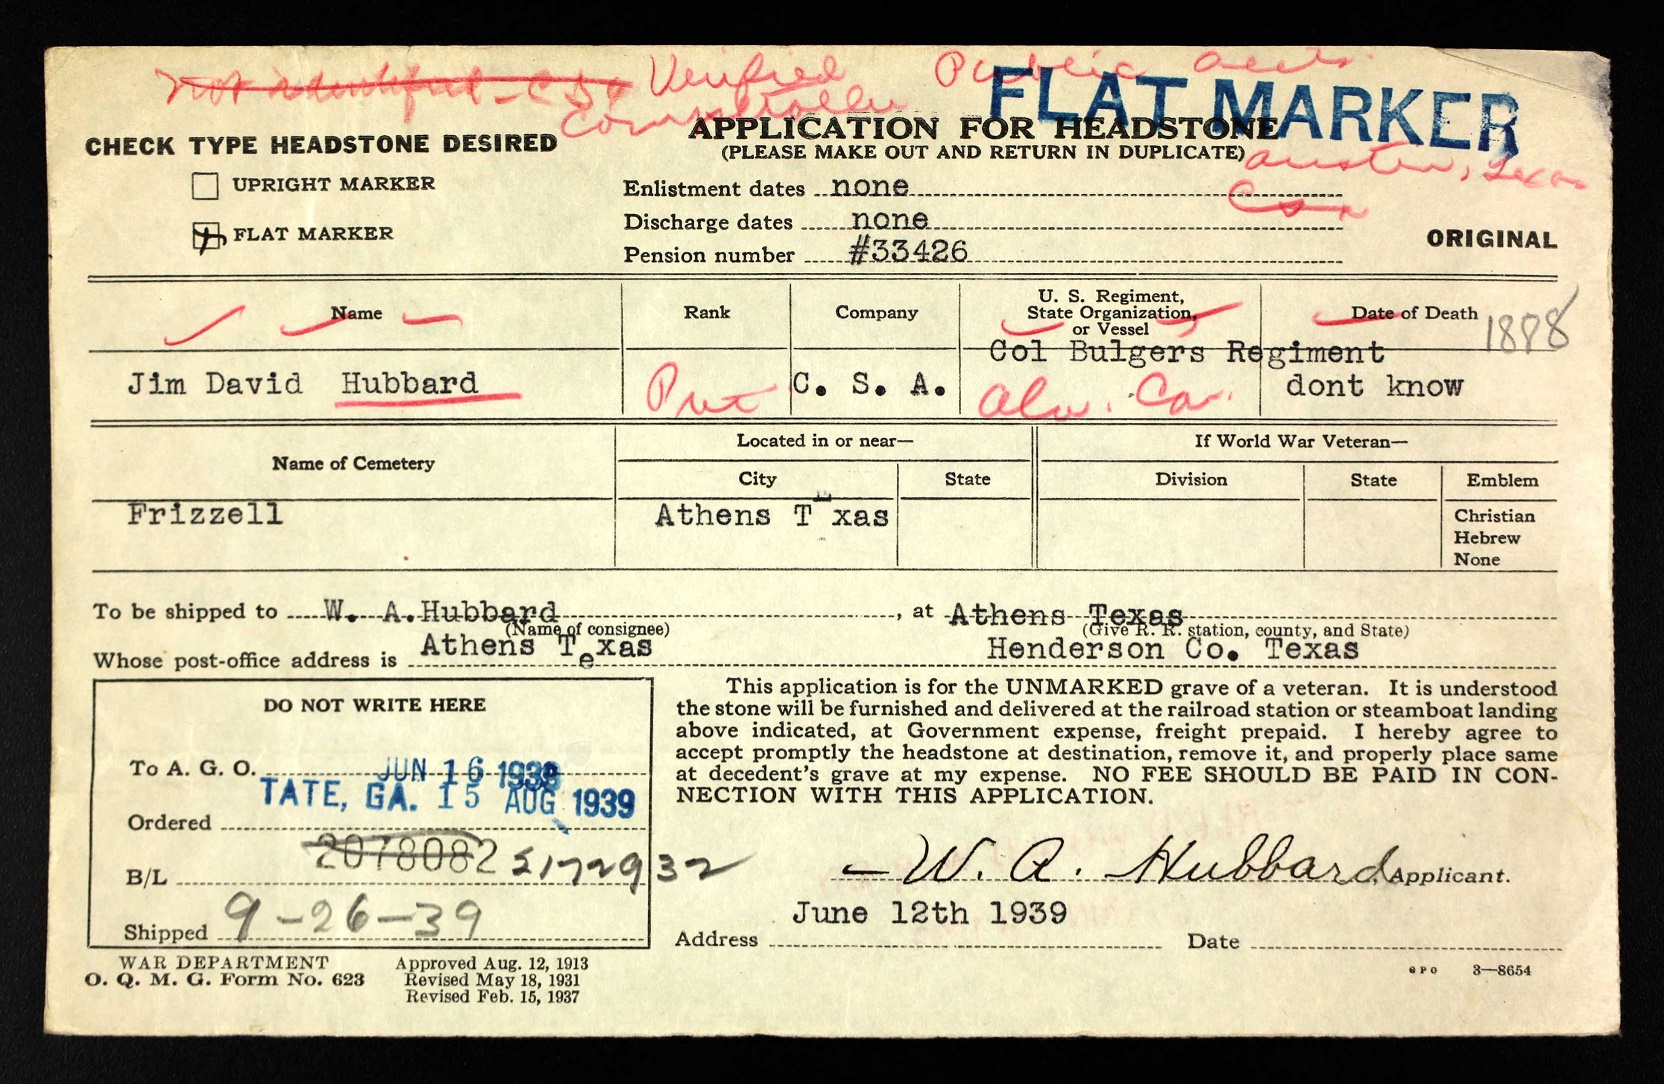 Not identified - CSA Verified Public Accts.
Comptroller
FLAT MARKER
APPLICATION FOR HEADSTONE
(PLEASE MAKE OUT AND RETURN IN DUPLICATE)
Austin, Texas
CHECK TYPE HEADSTONE DESIRED
UPRIGHT MARKER
FLAT MARKER
Enlistment dates none
Discharge dates none
Pension number #33426
ORIGINAL
Name Rank Company U. S. Regiment, State Organization, or Vessel Date of Death 1888
Col Bulgers Regiment
Jim David Hubbard Pvt C. S. A. Ala. dont know
Name of Cemetery Located in or near— If World War Veteran—
City State Division State Emblem
Frizzell Athens T xas Christian
E
Hebrew
None
To be shipped to W. A. Hubbard, at Athens Texas
(Name of consignee) (Give R. R. station, county, and State)
Whose post-office address is Athens Texas Henderson Co. Texas
DO NOT WRITE HERE
To A. G. O. JUN 16 1939
TATE, GA. 15 AUG 1939
Ordered
2078082 5172932
B/L
Shipped 9-26-39
This application is for the UNMARKED grave of a veteran. It is understood
the stone will be furnished and delivered at the railroad station or steamboat landing
above indicated, at Government expense, freight prepaid. I hereby agree to
accept promptly the headstone at destination, remove it, and properly place same
at decedent's grave at my expense. NO FEE SHOULD BE PAID IN CON-
NECTION WITH THIS APPLICATION.
W. A. Hubbard Applicant.
June 12th 1939
Address Date
WAR DEPARTMENT
O. Q. M. G. Form No. 623
Approved Aug. 12, 1913
Revised May 18, 1931
Revised Feb. 15, 1937
GPO 3—8654